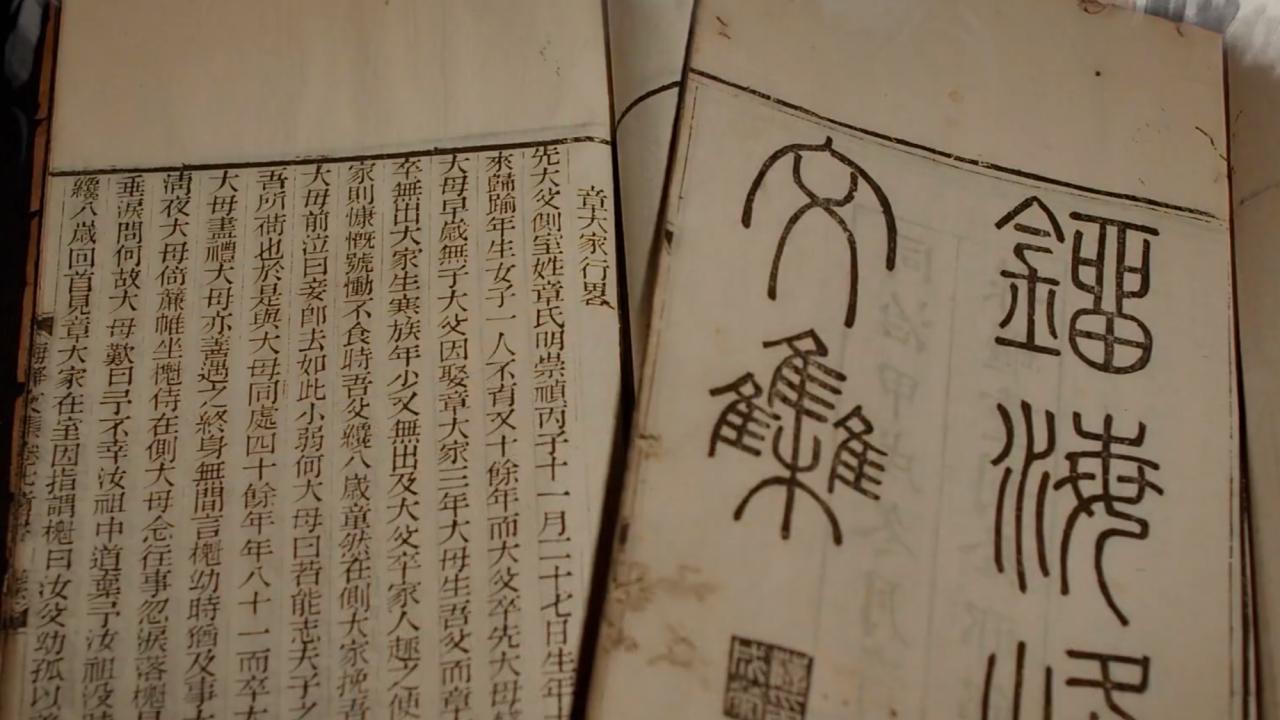 鐂海
文集
章大家行畧
先大父側室姓章氏明崇禎丙子十一月二十七日生年
來歸踰年生女子一人不育又十餘年而大父卒先大母
大母早歲無子大父因娶章大家三年大母生吾父而章
卒無出大家生寒族年少又無出及大父卒家人趣之使
家則慷慨號慟不食時吾父纔八歲童然在側大家挽吾
大母前泣曰妾即去如此小弱何大母曰若能志夫子之
吾所荷也於是與大母同處四十餘年年八十一而卒大
大母盡禮大母亦善遇之終身無間言櫆幼時猶及事大
清夜大母倚簾帷坐櫆侍在側大母念往事忽淚落櫆見
垂淚問何故大母歎曰予不幸汝祖中道棄予汝祖没時
纔八歲回首見章大家在室因指謂櫆曰汝父幼孤以
海峰文集卷七